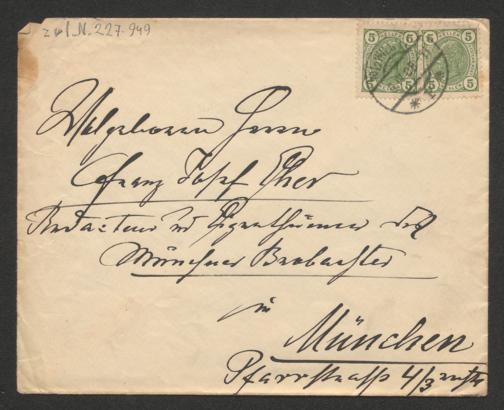 zu I.N. 227.949
5 HELLER 5
5 HELLER 5
Wolgeboren Herrn
Franz Josef Eher
Redacteur u Eigenthümer des
Münchner Beobachter
in
München
Pfarrstrasse 4/3 rechts